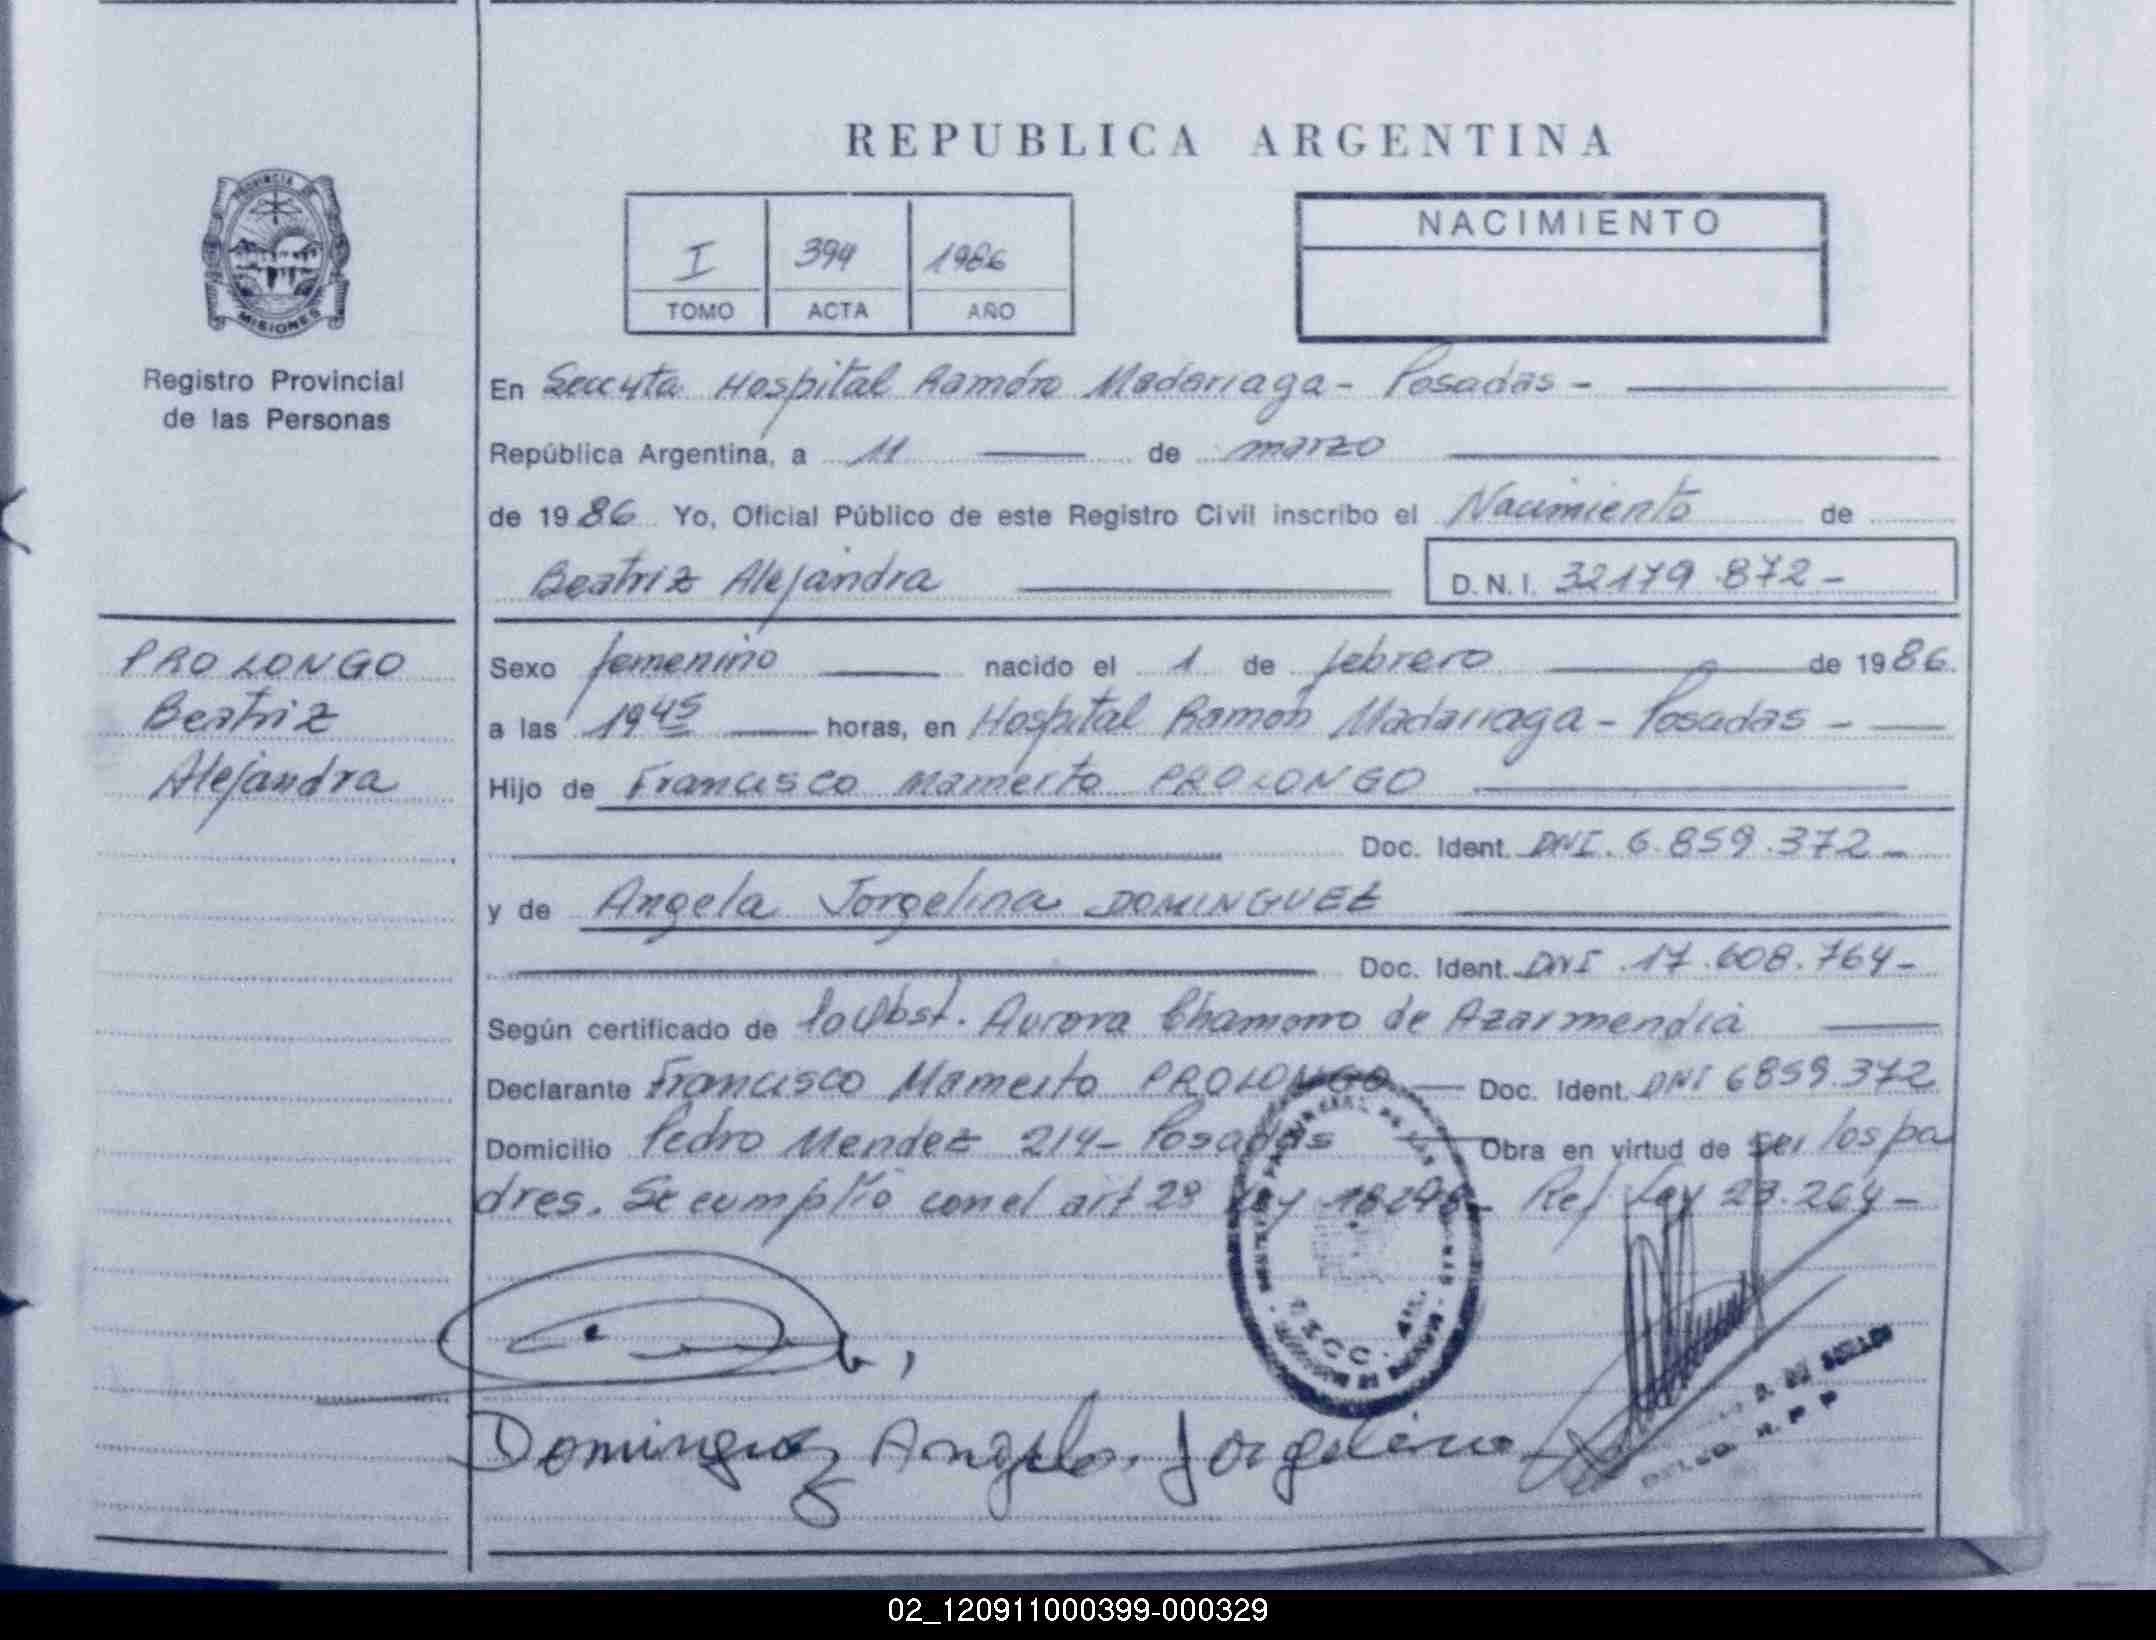 REPUBLICA ARGENTINA
PROVINCIA DE
MISIONES
Registro Provincial
de las Personas
I 394 1986
TOMO ACTA AÑO
NACIMIENTO
En Secc 4ta Hospital Ramón Madariaga - Posadas -
República Argentina, a 11 de marzo
de 1986 Yo, Oficial Público de este Registro Civil inscribo el Nacimiento de
Beatriz Alejandra D.N.I. 32179.872-
PROLONGO
Beatriz
Alejandra
Sexo femenino nacido el 1 de febrero de 1986.
a las 19 45 horas, en Hospital Ramón Madariaga - Posadas -
Hijo de Francisco Mamerto PROLONGO
Doc. Ident. DNI. 6.859.372-
y de Angela Jorgelina DOMINGUEZ
Doc. Ident. DNI .17.608.764-
Según certificado de la Obst. Aurora Chamorro de Azarmendia
Declarante Francisco Mamerto PROLONGO Doc. Ident. DNI 6859.372
Domicilio Pedro Mendez 214- Posadas Obra en virtud de ser los pa
dres. Se cumplió con el art 29 Ley 18248- Ref Ley 23.264-
Dominguez Angela Jorgelina
02_120911000399-000329